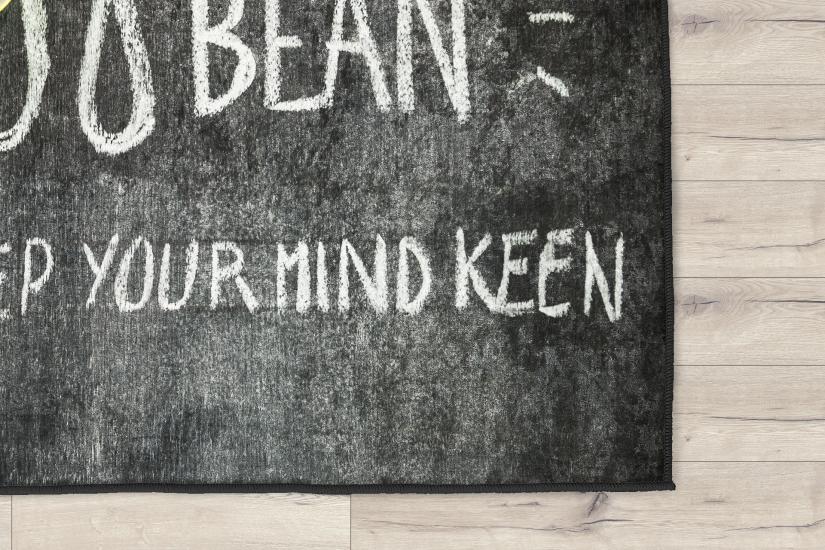 BEAN
YOUR MIND KEEN